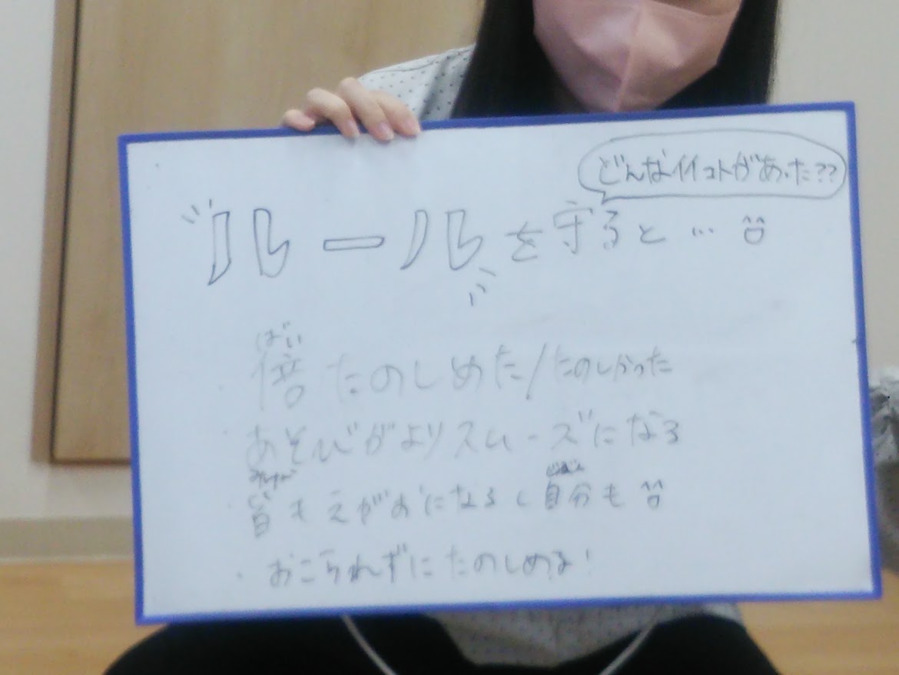 どんなイイコトがあった??
ルールを守ると…
ばい
・倍たのしめた/たのしかった
・あそびがよりスムーズになる
みんな じぶん
・皆もえがおになるし自分も
・おこられずにたのしめる!